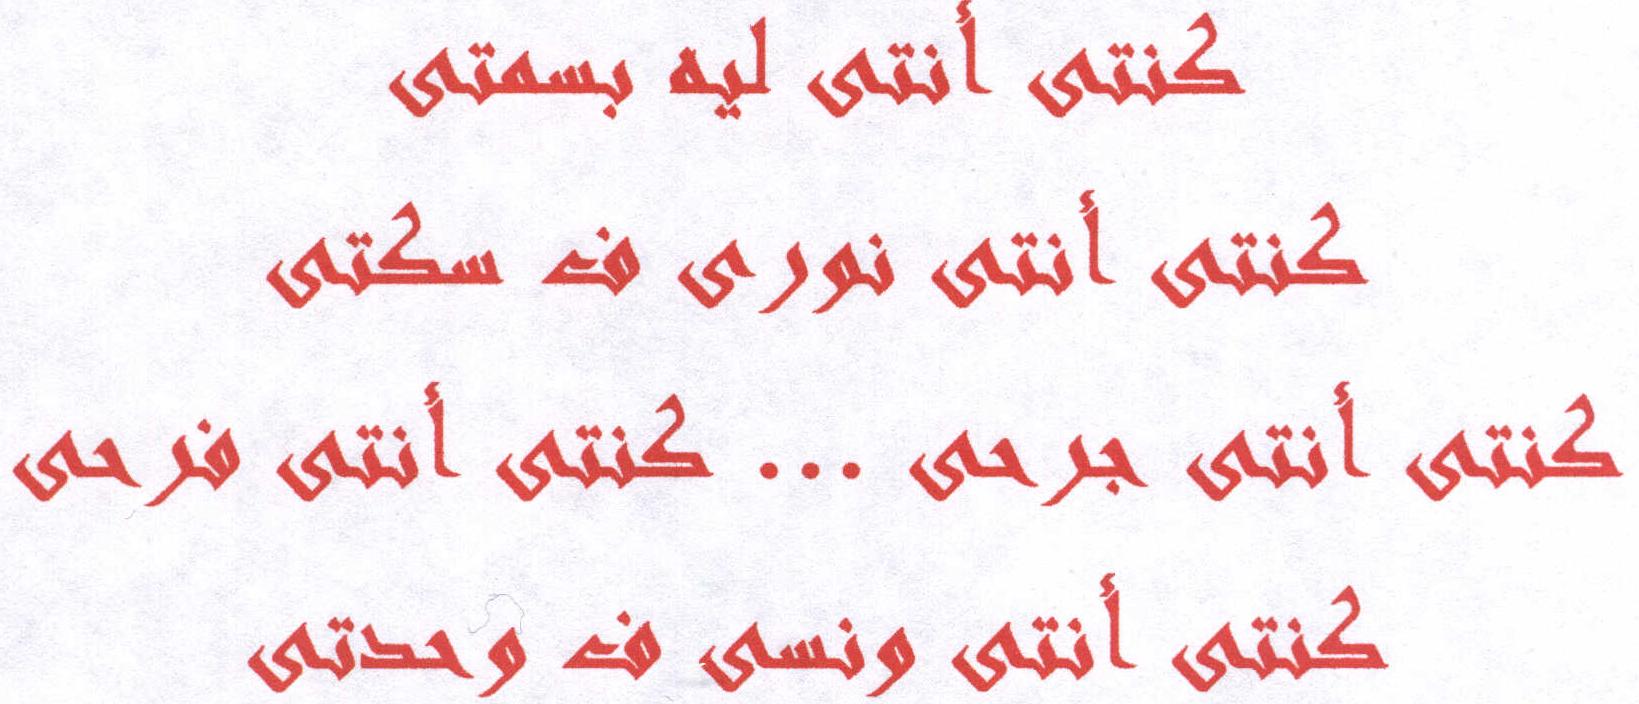 كنتى أنتى ليه بسمتى
كنتى أنتى نورى ف سكتى
كنتى أنتى جرحى ... كنتى أنتى فرحى
كنتى أنتى ونسى ف وحدتى